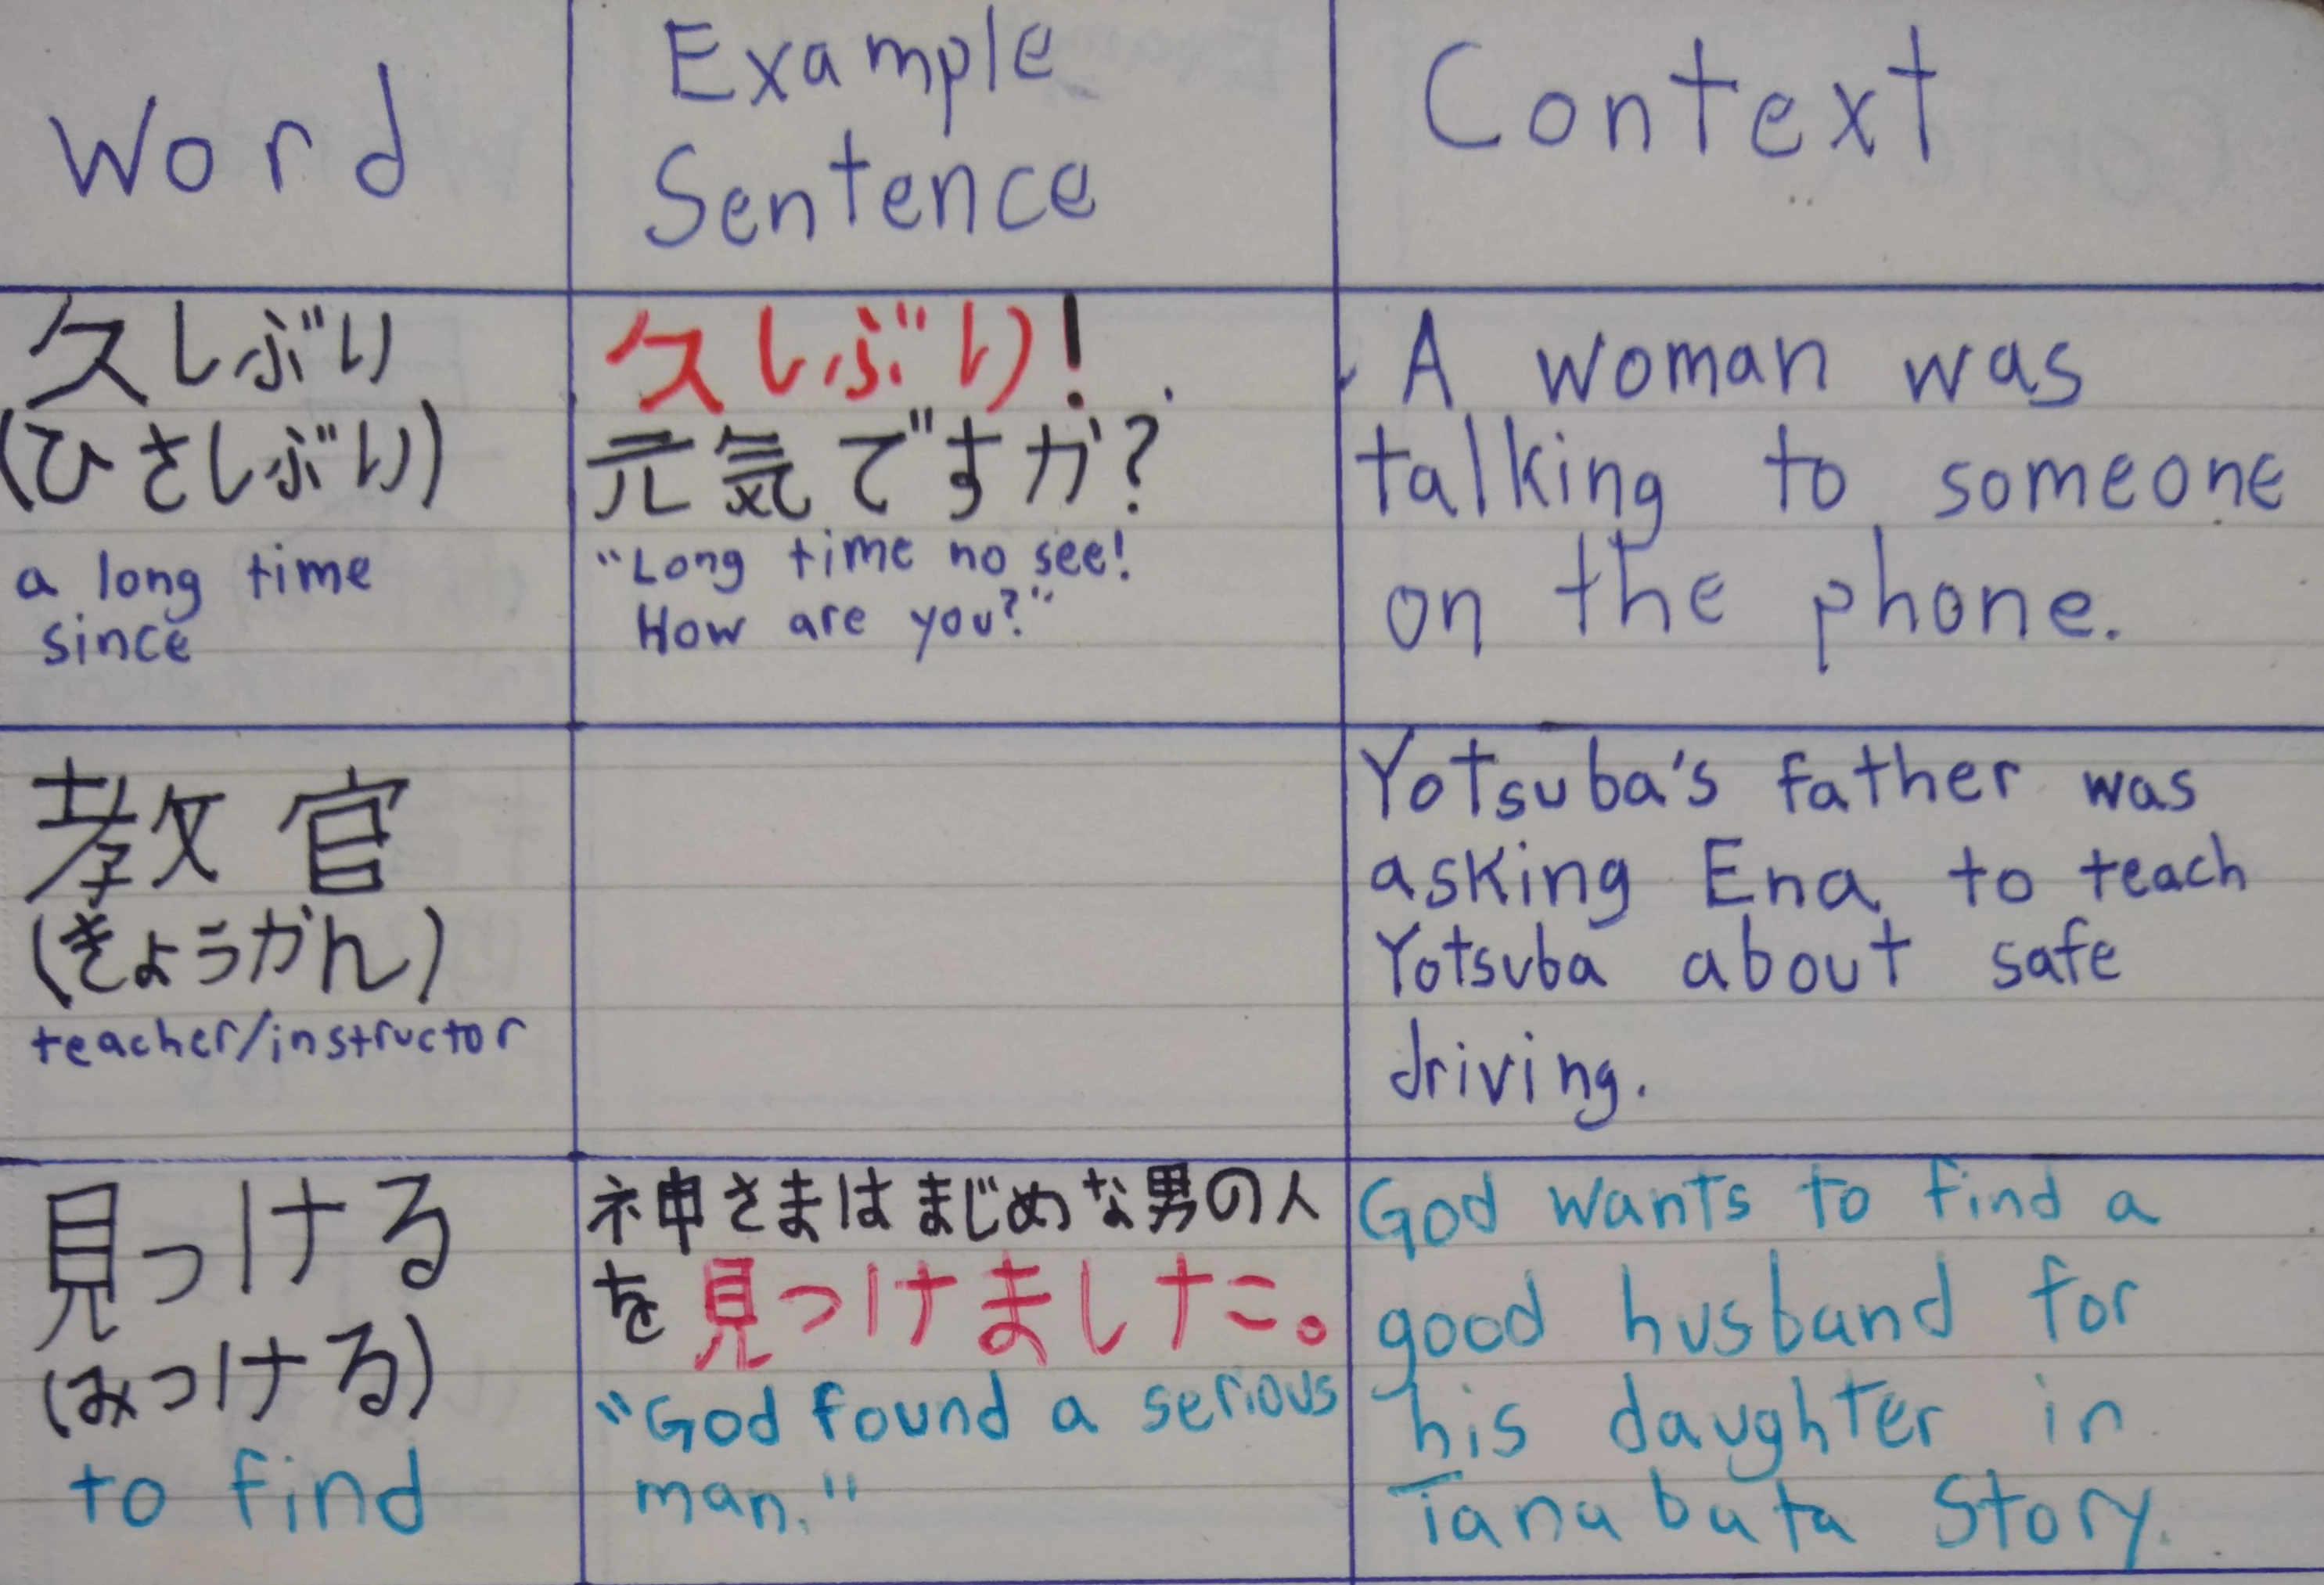 Word
Example
Sentence
Context
久しぶり
(ひさしぶり)
a long time
since
久しぶり!
元気ですか?
"Long time no see!
How are you?"
A woman was
talking to someone
on the phone.
教官
(きょうかん)
teacher/instructor
Yotsuba's father was
asking Ena to teach
Yotsuba about safe
driving.
見つける
(みつける)
to find
神さまはまじめな男の人
を見つけました。
"God found a serious
man."
God wants to find a
good husband for
his daughter in
Tanabata Story.